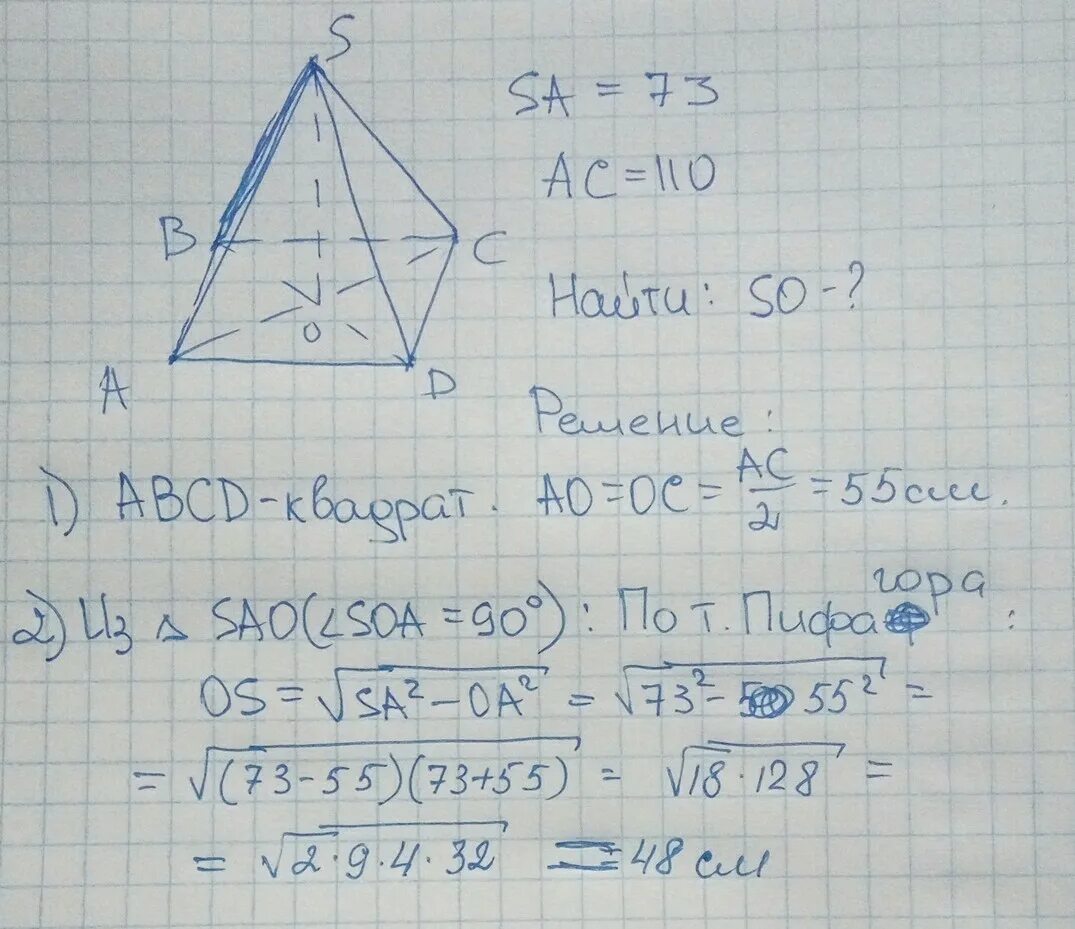 S
SA = 73
AC = 110
B
C
Найти: SO - ?
O
A
D
Решение:
1) ABCD - квадрат. AO = OC = AC/2 = 55 см.
2) Из △ SAO (∠SOA = 90°): По т. Пифагора:
OS = √(SA² - OA²) = √(73² - 55²) =
= √((73-55)(73+55)) = √(18 · 128) =
= √(2 · 9 · 4 · 32) = 48 см